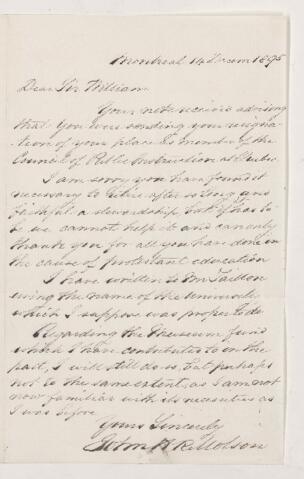 Montreal 14 Decem 1895
Dear Sir William
Your note received advising
that you were sending your resigna-
tion of your place as member of the
Council of Public Instruction at Quebec
I am sorry you have found it
necessary to retire after so long and
faithful a stewardship but if it has to
be we cannot help it and can only
thank you for all you have done in
the cause of protestant education
I have written to Mr
the name of the University
which I suppose was proper to do
Regarding the Museum fund
which I have contributed to in the
past, I will still do so, but perhaps
not to the same extent, as I am not
now familiar with its necessities as
I was before
Yours Sincerely
John H R Molson